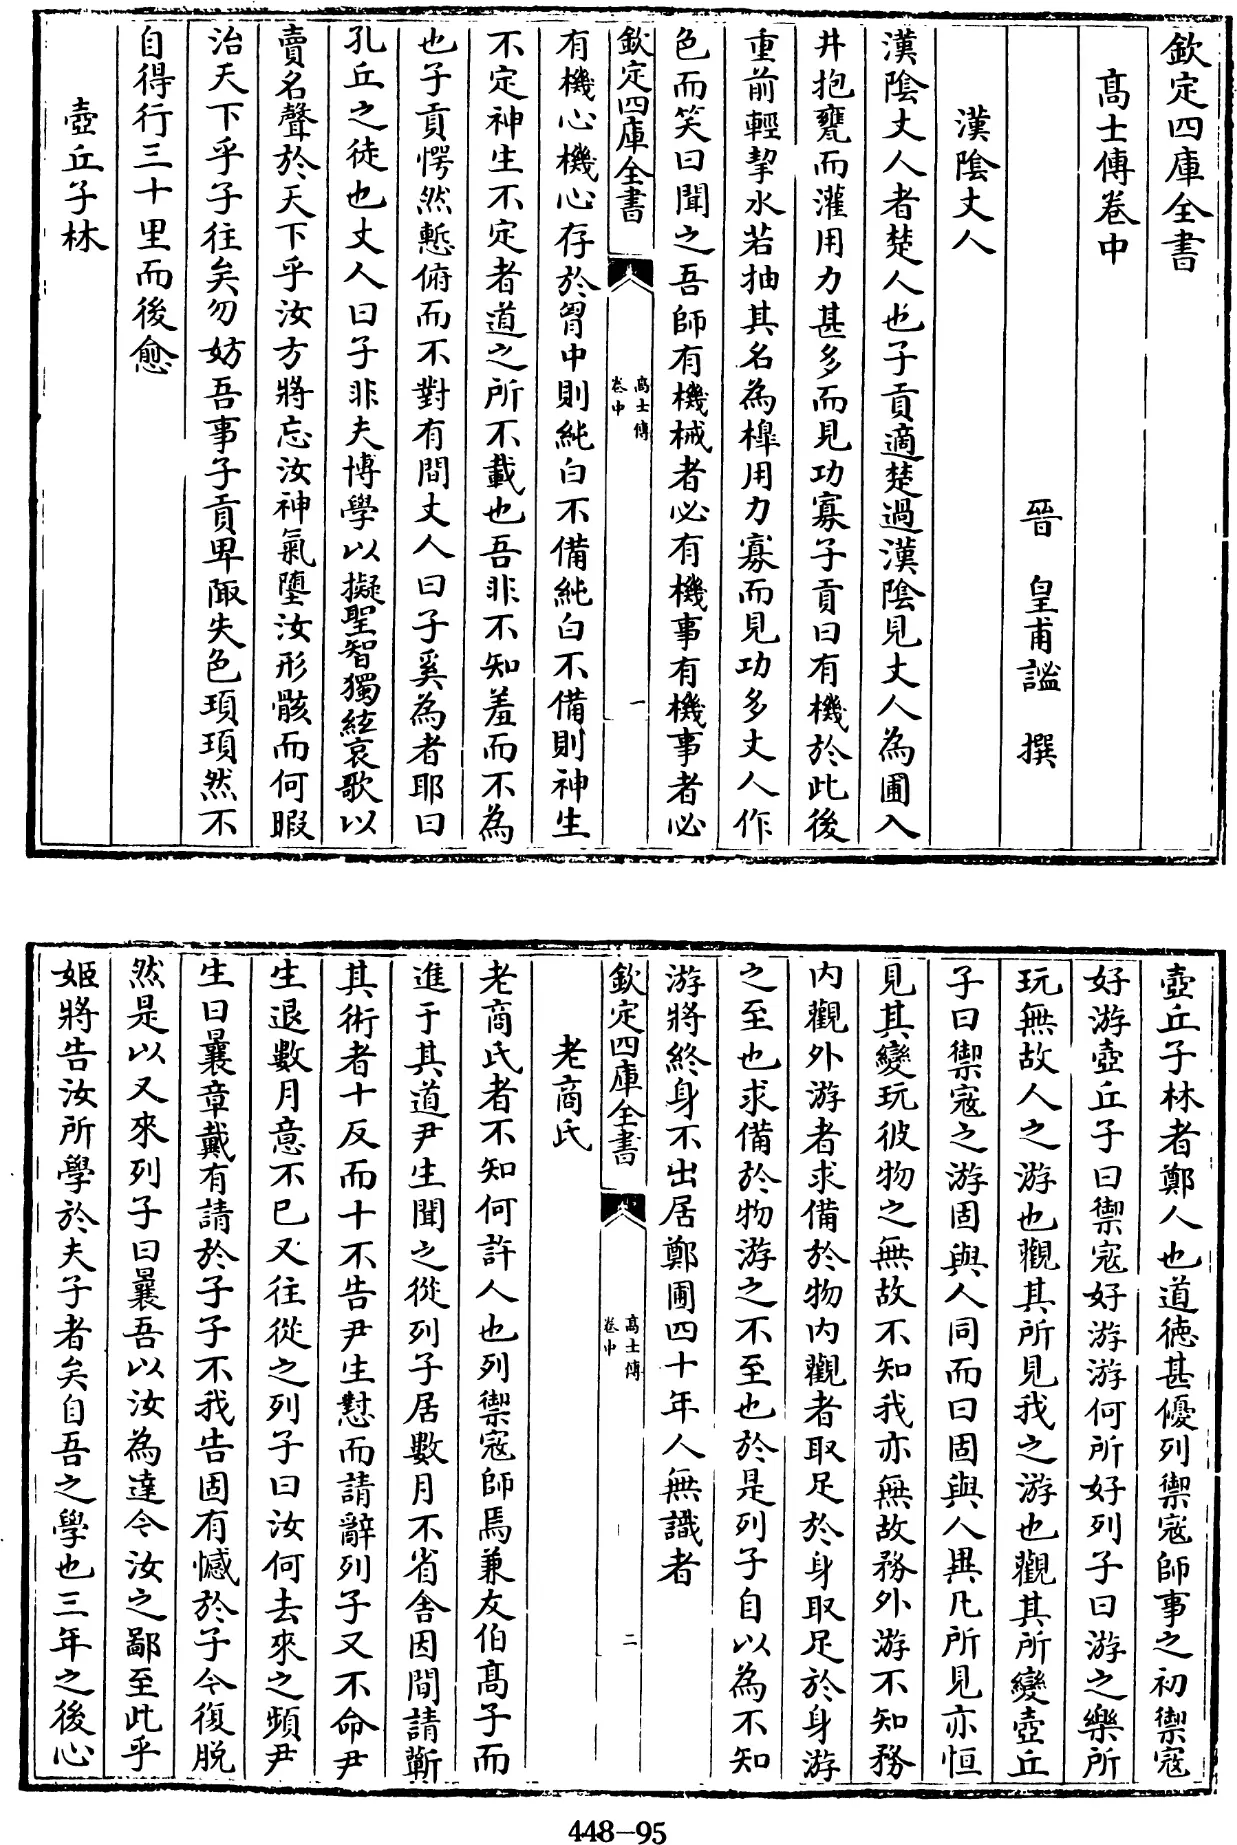 欽定四庫全書
高士傳卷中
晉 皇甫謐 撰
漢陰丈人
漢陰丈人者楚人也子貢適楚過漢陰見丈人為圃入
井抱甕而灌用力甚多而見功寡子貢曰有機於此後
重前輕挈水若抽其名為橰用力寡而見功多丈人作
色而笑曰聞之吾師有機械者必有機事有機事者必
欽定四庫全書 高士傳 卷中 一
有機心機心存於胷中則純白不備純白不備則神生
不定神生不定者道之所不載也吾非不知羞而不為
也子貢愕然慙俯而不對有間丈人曰子奚為者耶曰
孔丘之徒也丈人曰子非夫博學以擬聖智獨絃哀歌以
賣名聲於天下乎汝方將忘汝神氣墮汝形骸而何暇
治天下乎子往矣勿妨吾事子貢卑陬失色頊頊然不
自得行三十里而後愈
壺丘子林
壺丘子林者鄭人也道徳甚優列禦宼師事之初禦宼
好游壺丘子曰禦宼好游游何所好列子曰游之樂所
玩無故人之游也觀其所見我之游也觀其所變壺丘
子曰禦宼之游固與人同而曰固與人異凡所見亦恒
見其變玩彼物之無故不知我亦無故務外游不知務
内觀外游者求備於物内觀者取足於身取足於身游
之至也求備於物游之不至也於是列子自以為不知
游將終身不出居鄭圃四十年人無識者
欽定四庫全書 高士傳 卷中 二
老商氏
老商氏者不知何許人也列禦宼師焉兼友伯髙子而
進于其道尹生聞之從列子居數月不省舍因間請蘄
其術者十反而十不告尹生懟而請辭列子又不命尹
生退數月意不已又往從之列子曰汝何去來之頻尹
生曰曩章戴有請於子子不我告固有憾於子今復脱
然是以又來列子曰曩吾以汝為達今汝之鄙至此乎
姬將告汝所學於夫子者矣自吾之學也三年之後心
448-95